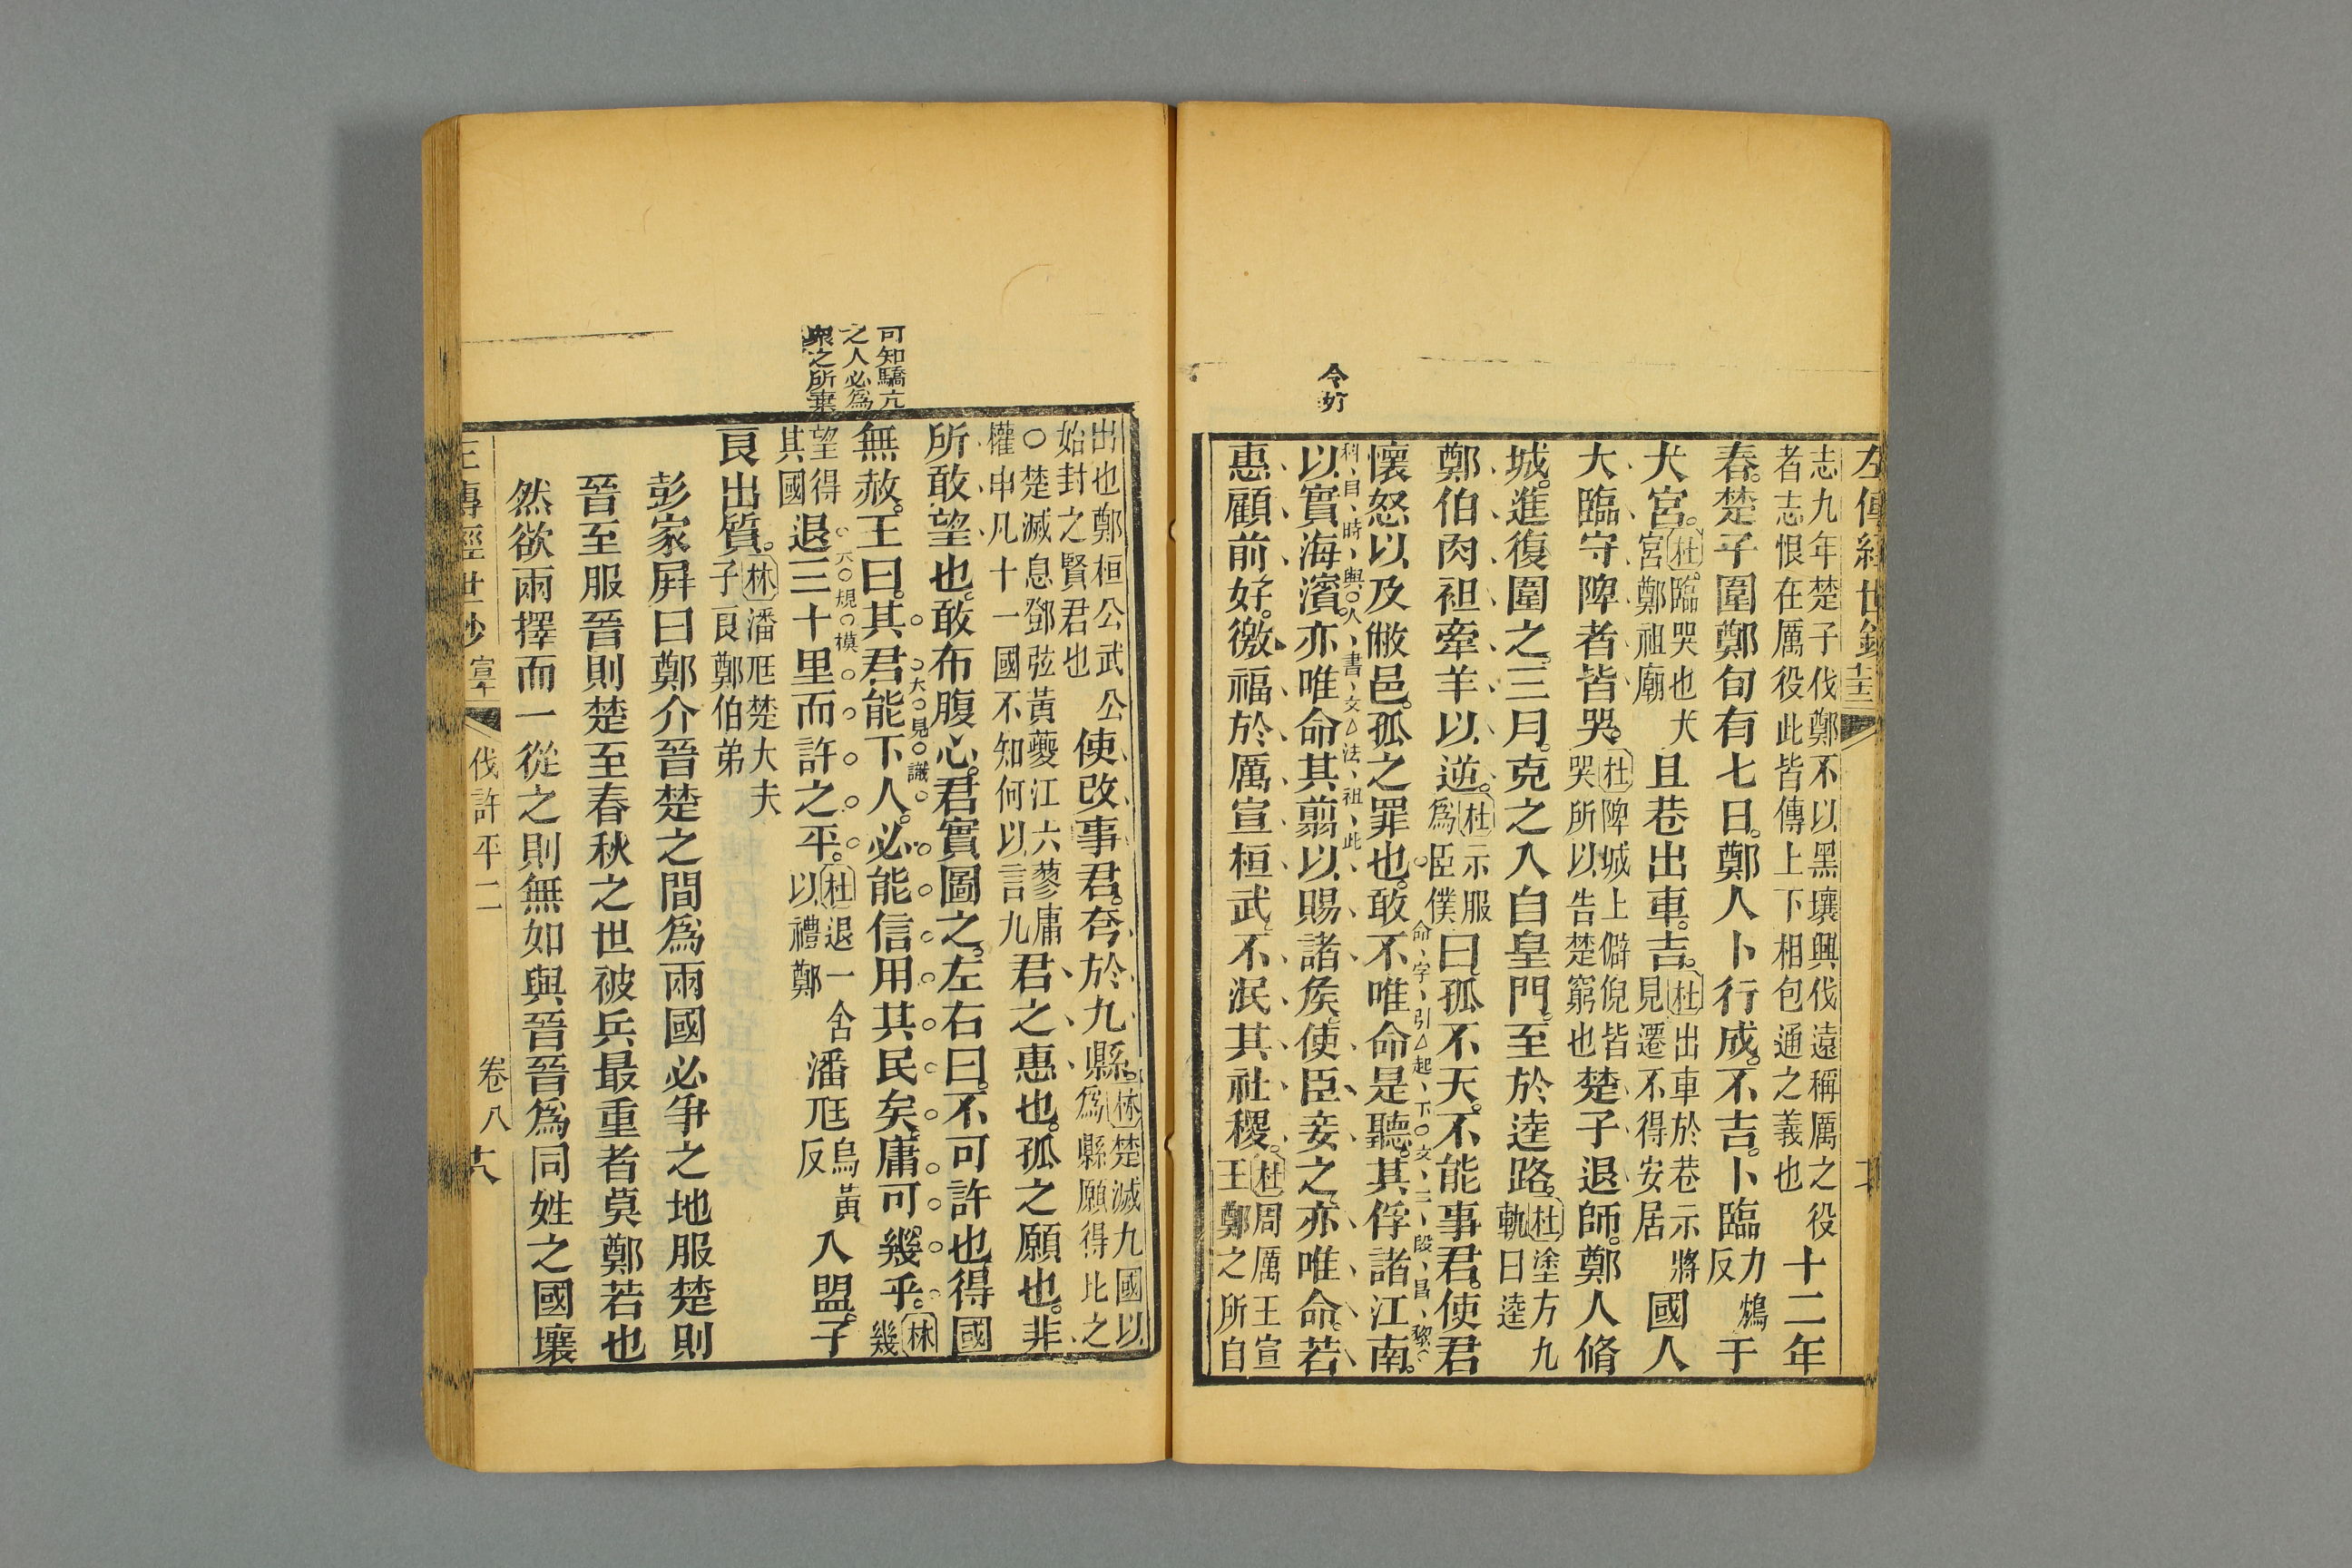 令妤
左傳經世鈔
志九年楚子伐鄭不以黑壤興伐遠稱厲之役
者志恨在厲役此皆傳上下相包通之義也
十二年
春楚子圍鄭旬有七日鄭人卜行成不吉卜臨力鴆反于
大宮杜臨哭也大宮鄭祖廟且巷出車吉杜出車於巷示將見遷不得安居國人
大臨守陴者皆哭杜陴城上僻倪皆哭所以告楚窮也楚子退師鄭人脩
城進復圍之三月克之入自皇門至於逵路杜塗方九軌曰逵
鄭伯肉袒牽羊以逆杜示服爲臣僕曰孤不天不能事君使君
命字引起下文三段
懷怒以及敝邑孤之罪也敢不唯命是聽其俘諸江南
以實海濱亦唯命其翦以賜諸侯使臣妾之亦唯命若
惠顧前好徼福於厲宣桓武不泯其社稷杜周厲王宣王鄭之所自
可知驕亢
之人必爲
衆之所棄
出也鄭桓公武公始封之賢君也使改事君夸於九縣林楚滅九國以爲縣願得比之
○楚滅息鄧弦黃夔江六蓼庸權申凡十一國不知何以言九君之惠也孤之願也非
所敢望也敢布腹心君實圖之左右曰不可許也得國
大見識
無赦王曰其君能下人必能信用其民矣庸可幾乎林幾
大規模
望得其國退三十里而許之平杜退一舍以禮鄭潘尫烏黃反入盟子
良出質林潘尫楚大夫子良鄭伯弟
彭家屛曰鄭介晉楚之間爲兩國必爭之地服楚則
晉至服晉則楚至春秋之世被兵最重者莫鄭若也
然欲兩擇而一從之則無如與晉晉爲同姓之國壤
伐許平二
卷八